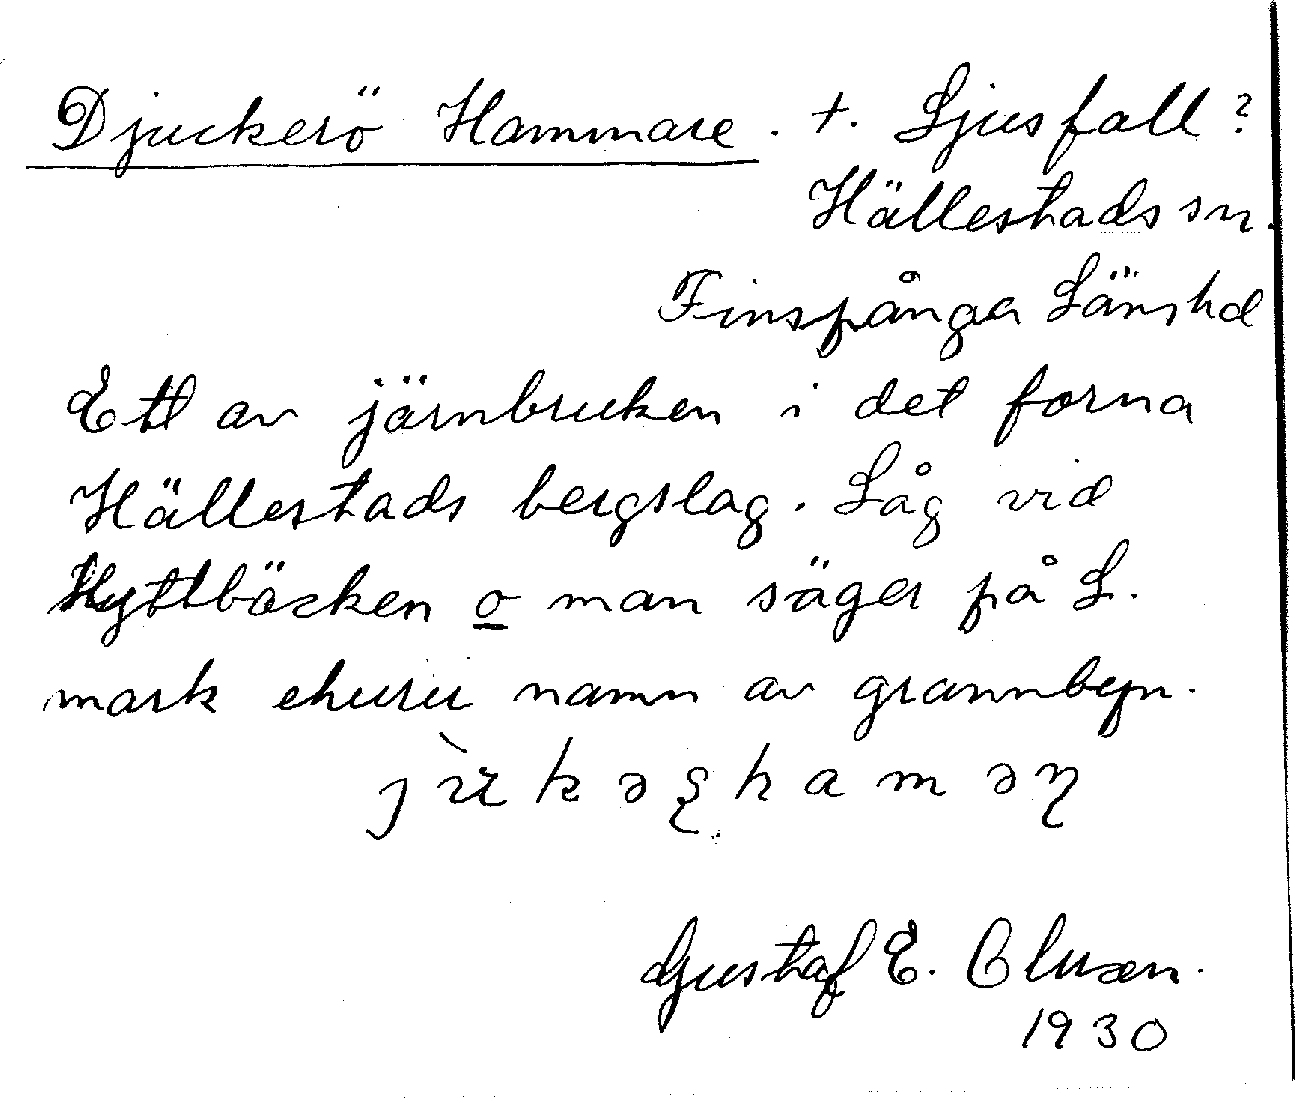 Djuckerö Hammare. +. Ljusfall?
Hällestads sn.
Finspånga Länshd
Ett av järnbruken i det forna
Hällestads bergslag. Låg vid
Hyttbäcken o man säger på L.
mark ehuru namn av grannbyn.
Gustaf E. Cluxen.
1930